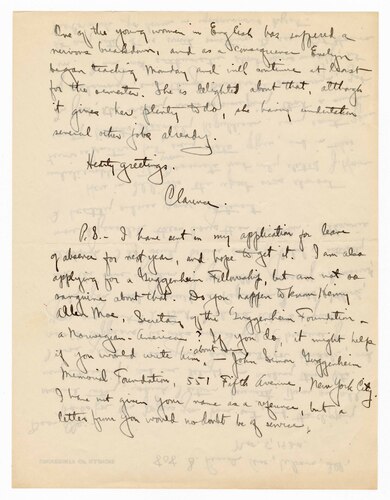 One of the young women in English has suffered a
nervous breakdown, and as a consequence Evelyn
began teaching Monday and will continue at least
for the semester. She is delighted about that, although
it gives her plenty to do, she having undertaken
several other jobs already.
Hearty greetings.
Clarence.
P.S.- I have sent in my application for leave
of absence for next year, and hope to get it. I am also
applying for a Guggenheim Fellowship, but am not so
sanguine about that. Do you happen to know Henry
Allen Moe, Secretary of the Guggenheim Foundation -
a Norwegian-American? If you do, it might help
if you would write him, about - John Simon Guggenheim
Memorial Foundation, 551 Fifth Avenue, New York City.
I have not given your name as a reference, but a
letter from you would no doubt be of service.